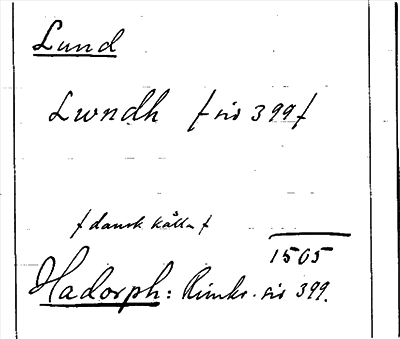 Lund
Lwndh / sid 399 /
/ dansk källa /
1505
Hadorph: Rimkr. sid 399.